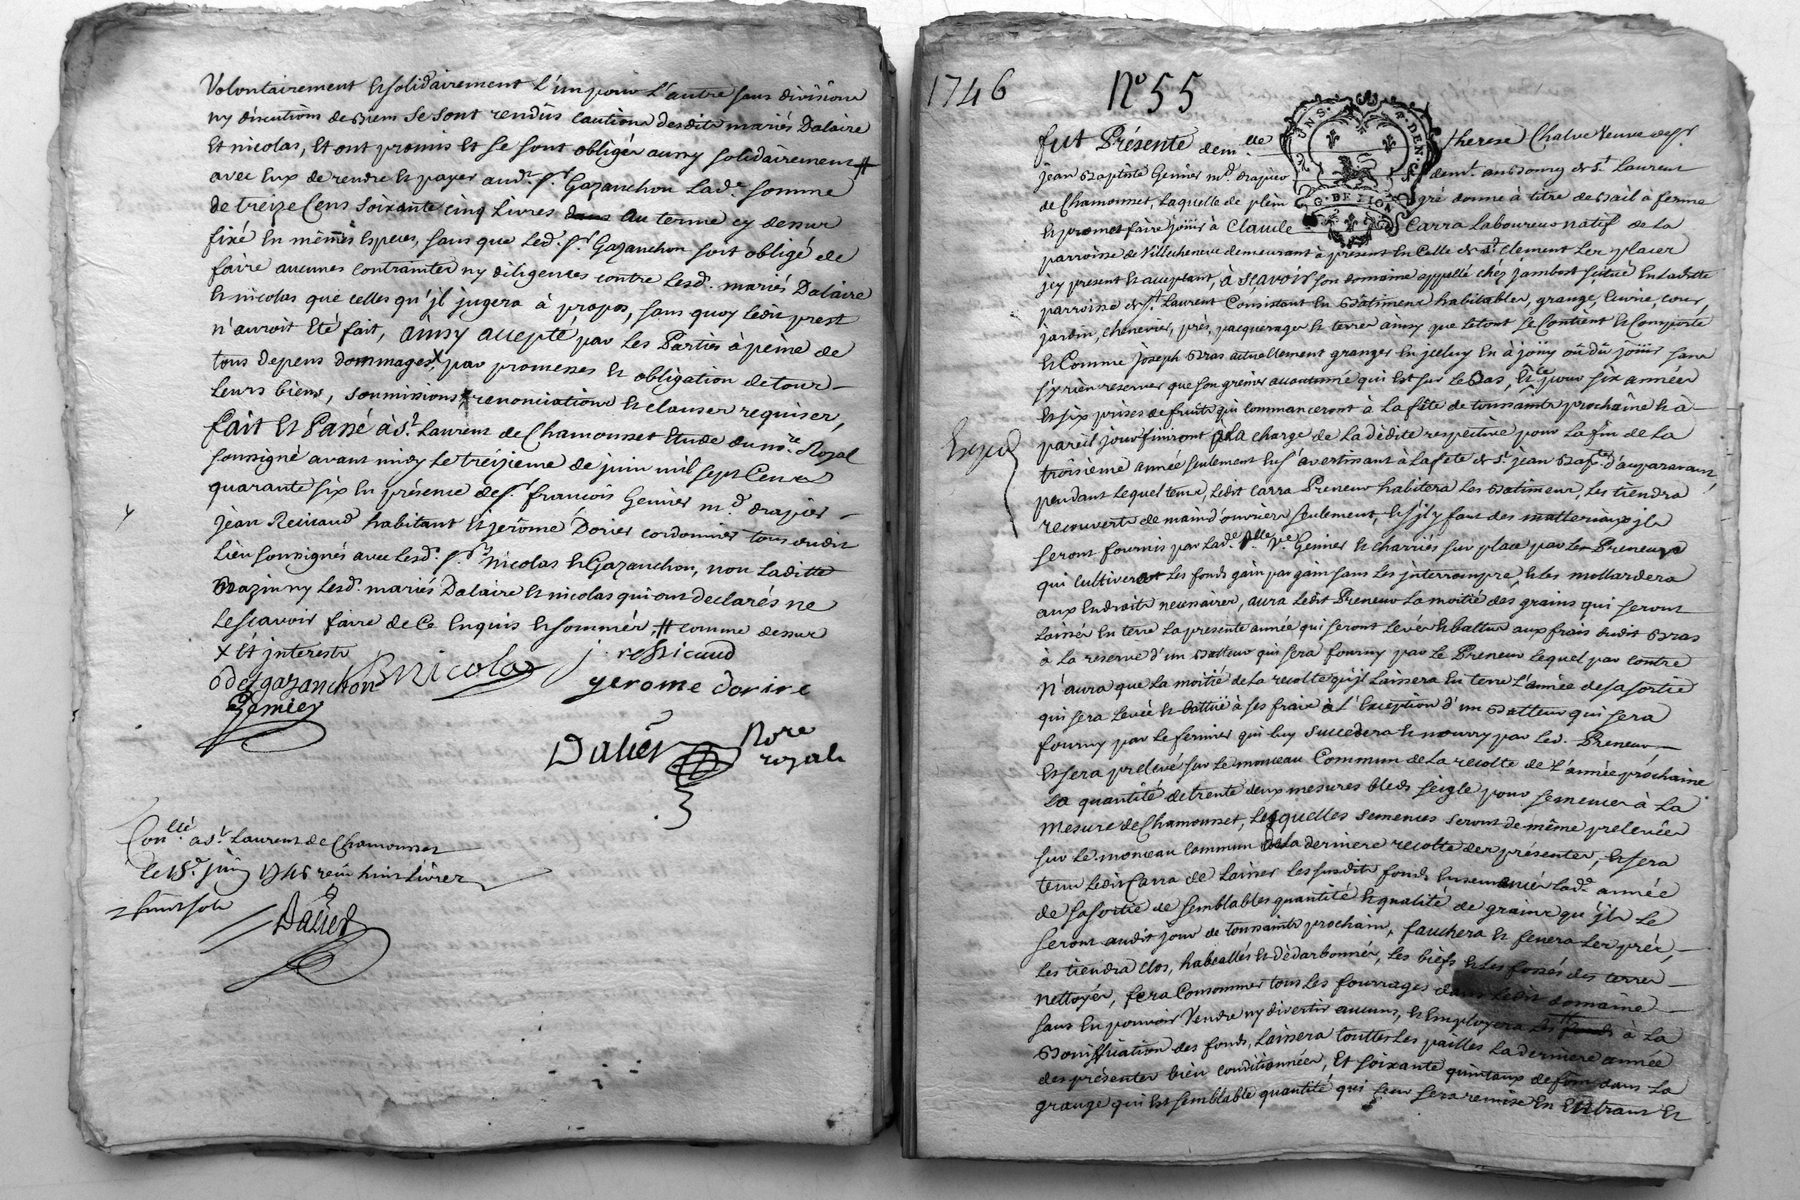 Volontairement et solidairement l'un pour l'autre sans division
ny discution de biens se sont rendus cautions desdits mariés Dalaire
et nicolas, et ont promis et se sont obligés aussy solidairement #
avec eux de rendre et payer aud. sr. Gazanchon lad. somme
de treize cens soixante cinq livres dans au terme cy dessur
fixé en mêmes especes, sans que led. sr Gazanchon soit obligé de
faire aucunes contraintes ny diligences contre lesd. mariés Dalaire
et nicolas que celles qu'jl jugera à propos, sans quoy ledit prest
n'auroit eté fait, ainsy accepté par les Parties à peine de
tous depens dommages x par promesses et obligation de tous
leurs biens, soumissions, renonciations et clauses requises,
fait et Passé à St. Laurent de Chamousset Etude du nore. Royal
soussigné avant midy le treizieme de juin mil sept Cens
quarante six en présence de sr. françois Gemier md. drapier
jean Reinaud habitant et jerôme Dorier cordonnier tous dudit
lieu soussignés avec lesd. srs. Nicolas et Gazanchon, non laditte
Bazin ny lesd. mariés Dalaire et nicolas qui ont declarés ne
le sçavoir faire de ce enquis et sommés, # comme dessur
x et interests
gazanchon Nicolas reinaud
Gemier yerome dorire
Daliet Nore
royal
Conllé. a St. Laurent de Chamousset
le 15e. juin 1746 receu huit livres
huit sols
Daliet
1746 No 55
fut Présente demlle therese Chalve Veuve de sr.
jean Baptiste Gemier md. drapier demt. au Bourg de St. Laurent
de Chamousset, Laquelle de plein gré donne à titre de Bail à ferme
et promet faire joüir à Claude Carra Laboureur natif de la
parroisse de Villecheneve demeurant à present en Celle de St. Clement les places
jcy present et acceptant, à sçavoir son domaine appellé chez jambost situé en laditte
parroisse de St. Laurent Consistant en Batimens habitables, grange, Ecurie, cour,
jardin, cheneviers, prés, pacquerages et terres ainsy que le tout se Contient et Comporte
et Comme joseph Bras actuellement granger en jceluy en à joüy oû dû joüir sans
s'y rien reserver que son grenier accoutumé qui est sur le Bas, Et ce pour six années
et six prises de fruits qui commanceront à la fête de toussaints prochaine et à
pareil jour finiront à la charge de la dédite respective pour la fin de la
troisieme année seulement en s'avertissant à la fete de St jean Bapte. d'auparavant
pendant lequel tems, ledit Carra Preneur habitera les Batimens, les tiendra
recouverts de main d'ouvriers seulement, et s'jl y faut des matteriaux jls
seront fournis par lad. dlle. Ve. Gemier et charriés sur place par le Preneur
qui cultivera les fonds gain par gain sans les jnterrompre et les mollardera
aux Endroits necessaires, aura ledit Preneur la moitié des grains qui seront
Laissés en terre la presente année qui seront levés et battus aux frais dudit Bras
à la reserve d'un Batteur qui sera fourny par le Preneur lequel par contre
N'aura que la moitié de la recolte qu'jl laissera en terre l'année de sa sortie
qui sera levée et battüe à ses frais à l'Exception d'un Batteur qui sera
fourny par le fermier qui luy succedera et nourry par led. Preneur
et sera prelevé sur le monceau Commun de la recolte de l'année prochaine
la quantité de trente deux mesures bleds seigle pour semences à la
mesure de Chamousset, lesquelles semences seront de même prelevées
sur le monceau commun de la derniere recolte des présentes, et sera
tenu ledit Carra de laisser les susdits fonds ensemencés lad. année
de sa sortie de semblables quantité et qualité de grains qu'jls le
seront audit jour de toussaints prochain, fauchera et fenera les prés,
les tiendra clos, habeallés et dédarbonnés, les biefs et les fossés des terres
nettoyés, fera Consommer tous les fourrages dans ledit domaine
sans en pouvoir Vendre ny divertir aucuns, et Employera les fonds à la
Bonification des fonds, laissera touttes les pailles la derniere année
des présentes bien conditionnées, et soixante quintaux de foin dans la
grange qui est semblable quantité qui leur sera remise en Entrant et